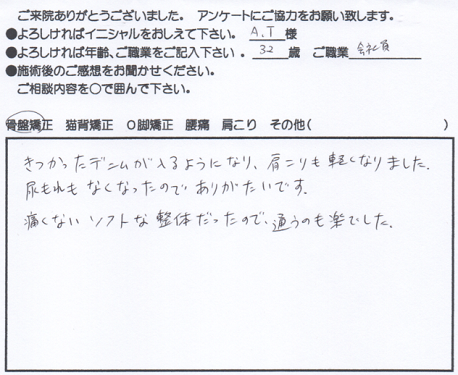 ご来院ありがとうございました。 アンケートにご協力をお願い致します。
●よろしければイニシャルをおしえて下さい。 A.T 様
●よろしければ年齢、ご職業をご記入下さい。 32 歳 ご職業 会社員
●施術後のご感想をお聞かせください。
ご相談内容を○で囲んで下さい。
骨盤矯正 猫背矯正 O脚矯正 腰痛 肩こり その他( )
きつかったデニムが入るようになり、肩こりも軽くなりました。
尿もれもなくなったのでありがたいです。
痛くないソフトな整体だったので、通うのも楽でした。